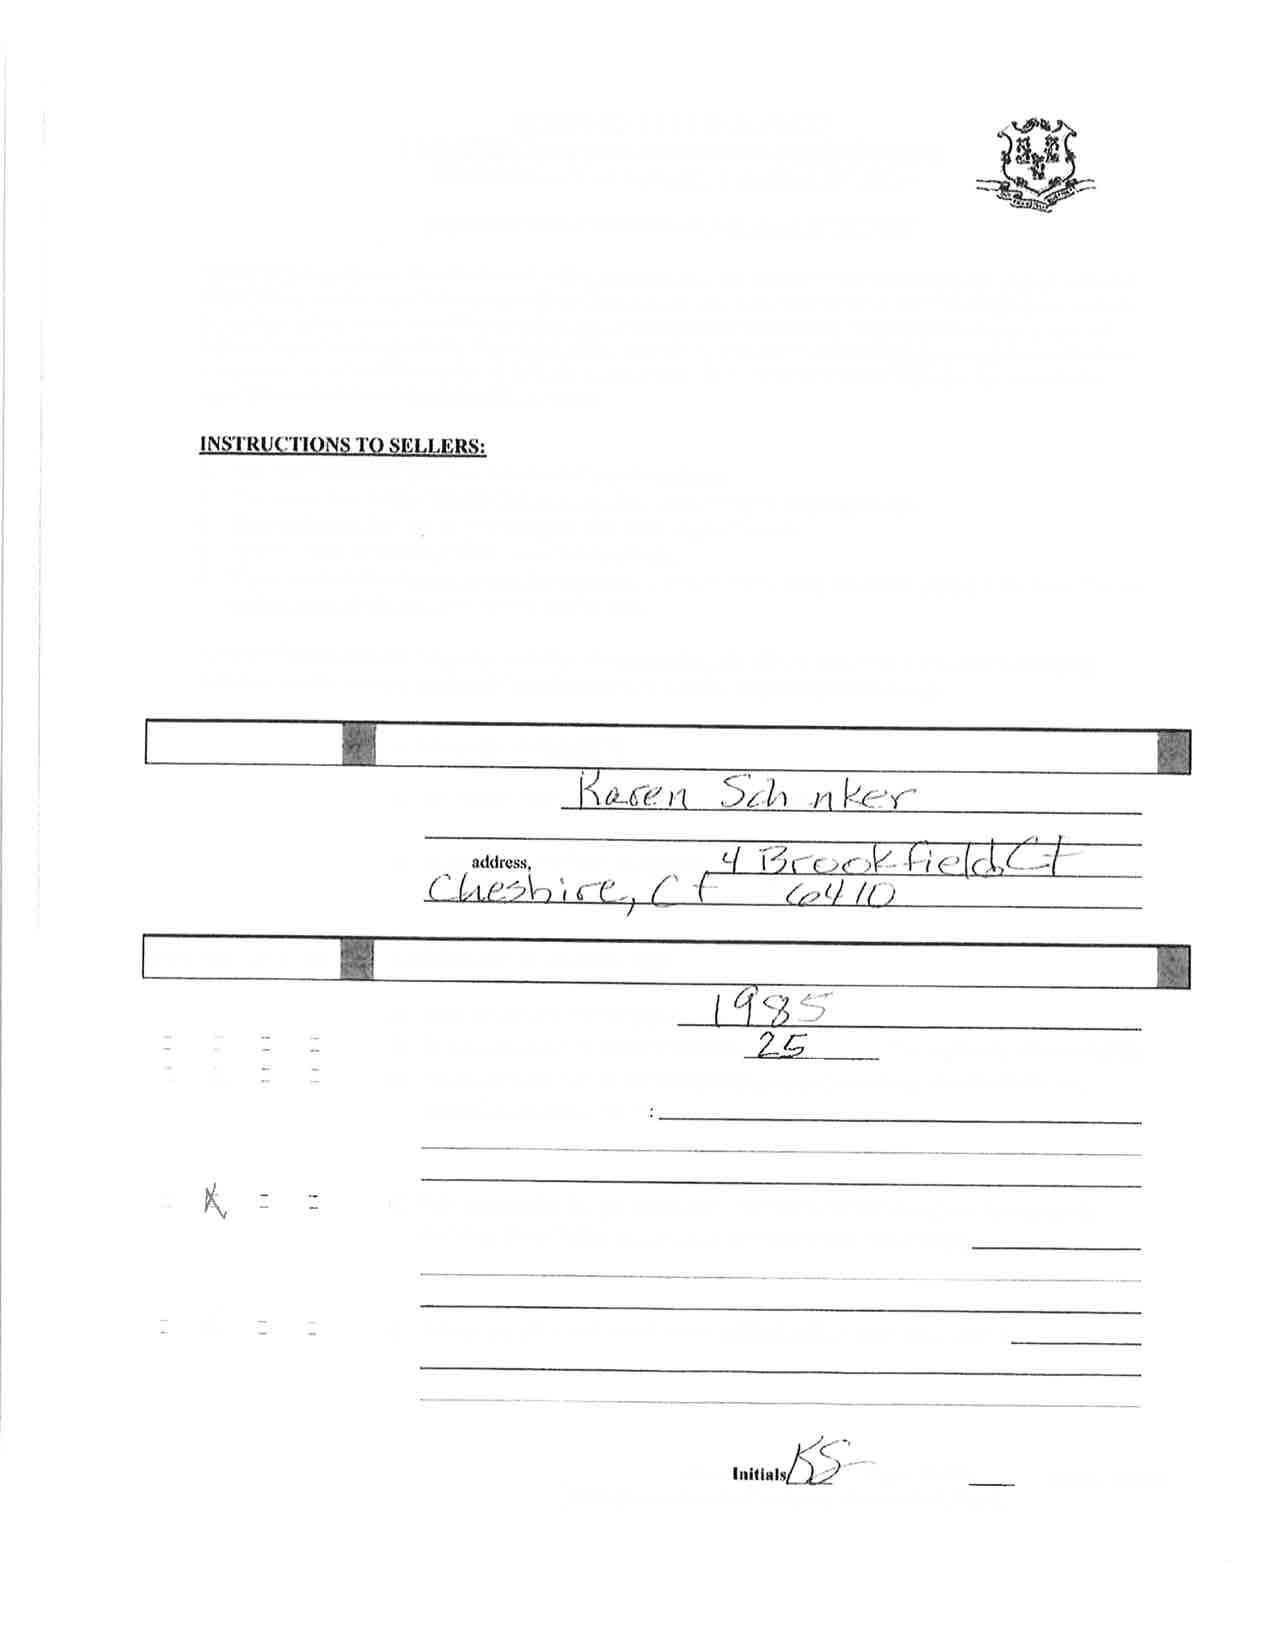 INSTRUCTIONS TO SELLERS:
Karen Schnker
address, 4 Brookfield, Ct
Cheshire, Ct 6410
1985
25
:
X
Initials KS